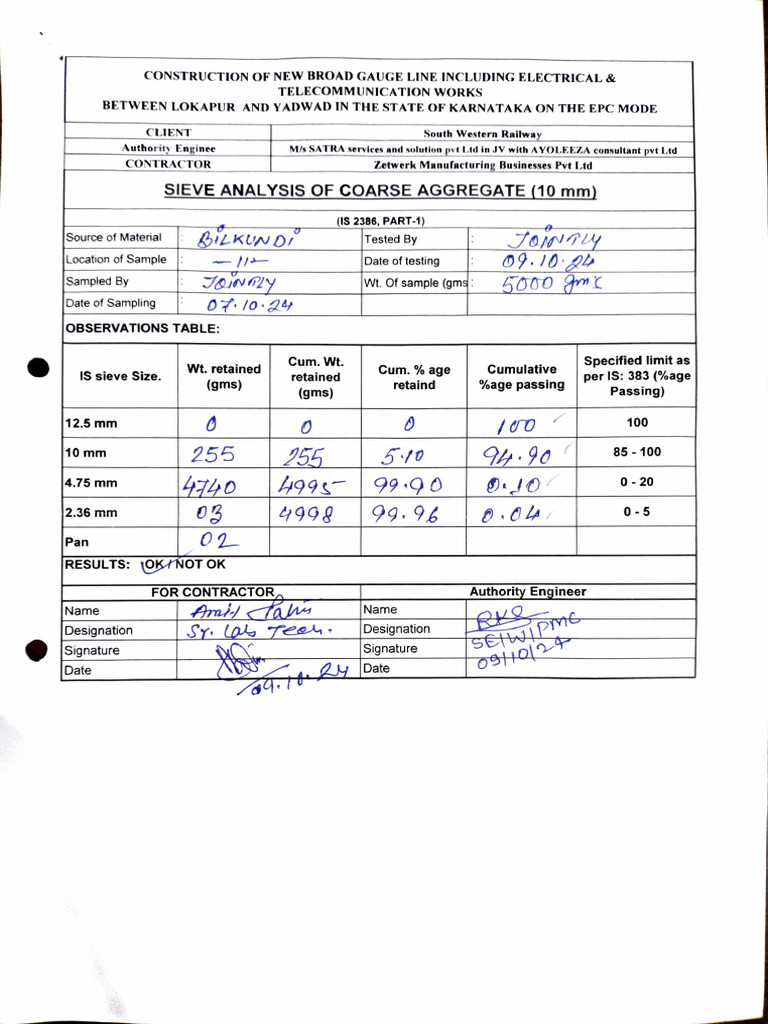 CONSTRUCTION OF NEW BROAD GAUGE LINE INCLUDING ELECTRICAL &
TELECOMMUNICATION WORKS
BETWEEN LOKAPUR AND YADWAD IN THE STATE OF KARNATAKA ON THE EPC MODE
CLIENT South Western Railway
Authority Enginee M/s SATRA services and solution pvt Ltd in JV with AYOLEEZA consultant pvt Ltd
CONTRACTOR Zetwerk Manufacturing Businesses Pvt Ltd
SIEVE ANALYSIS OF COARSE AGGREGATE (10 mm)
(IS 2386, PART-1)
Source of Material : BILKUNDI Tested By : JOINTLY
Location of Sample : -11- Date of testing : 09.10.24
Sampled By : JOINTLY Wt. Of sample (gms : 5000 gms
Date of Sampling : 07.10.24
OBSERVATIONS TABLE:
IS sieve Size. Wt. retained (gms) Cum. Wt. retained (gms) Cum. % age retaind Cumulative %age passing Specified limit as per IS: 383 (%age Passing)
12.5 mm 0 0 0 100 100
10 mm 255 255 5.10 94.90 85 - 100
4.75 mm 4740 4995 99.90 0.10 0 - 20
2.36 mm 03 4998 99.96 0.04 0 - 5
Pan 02
RESULTS: OK / NOT OK
FOR CONTRACTOR Authority Engineer
Name Name
Designation Sr. Lab Tech. Designation SE/W/PMC
Signature Signature
Date 09.10.24 Date 09/10/24